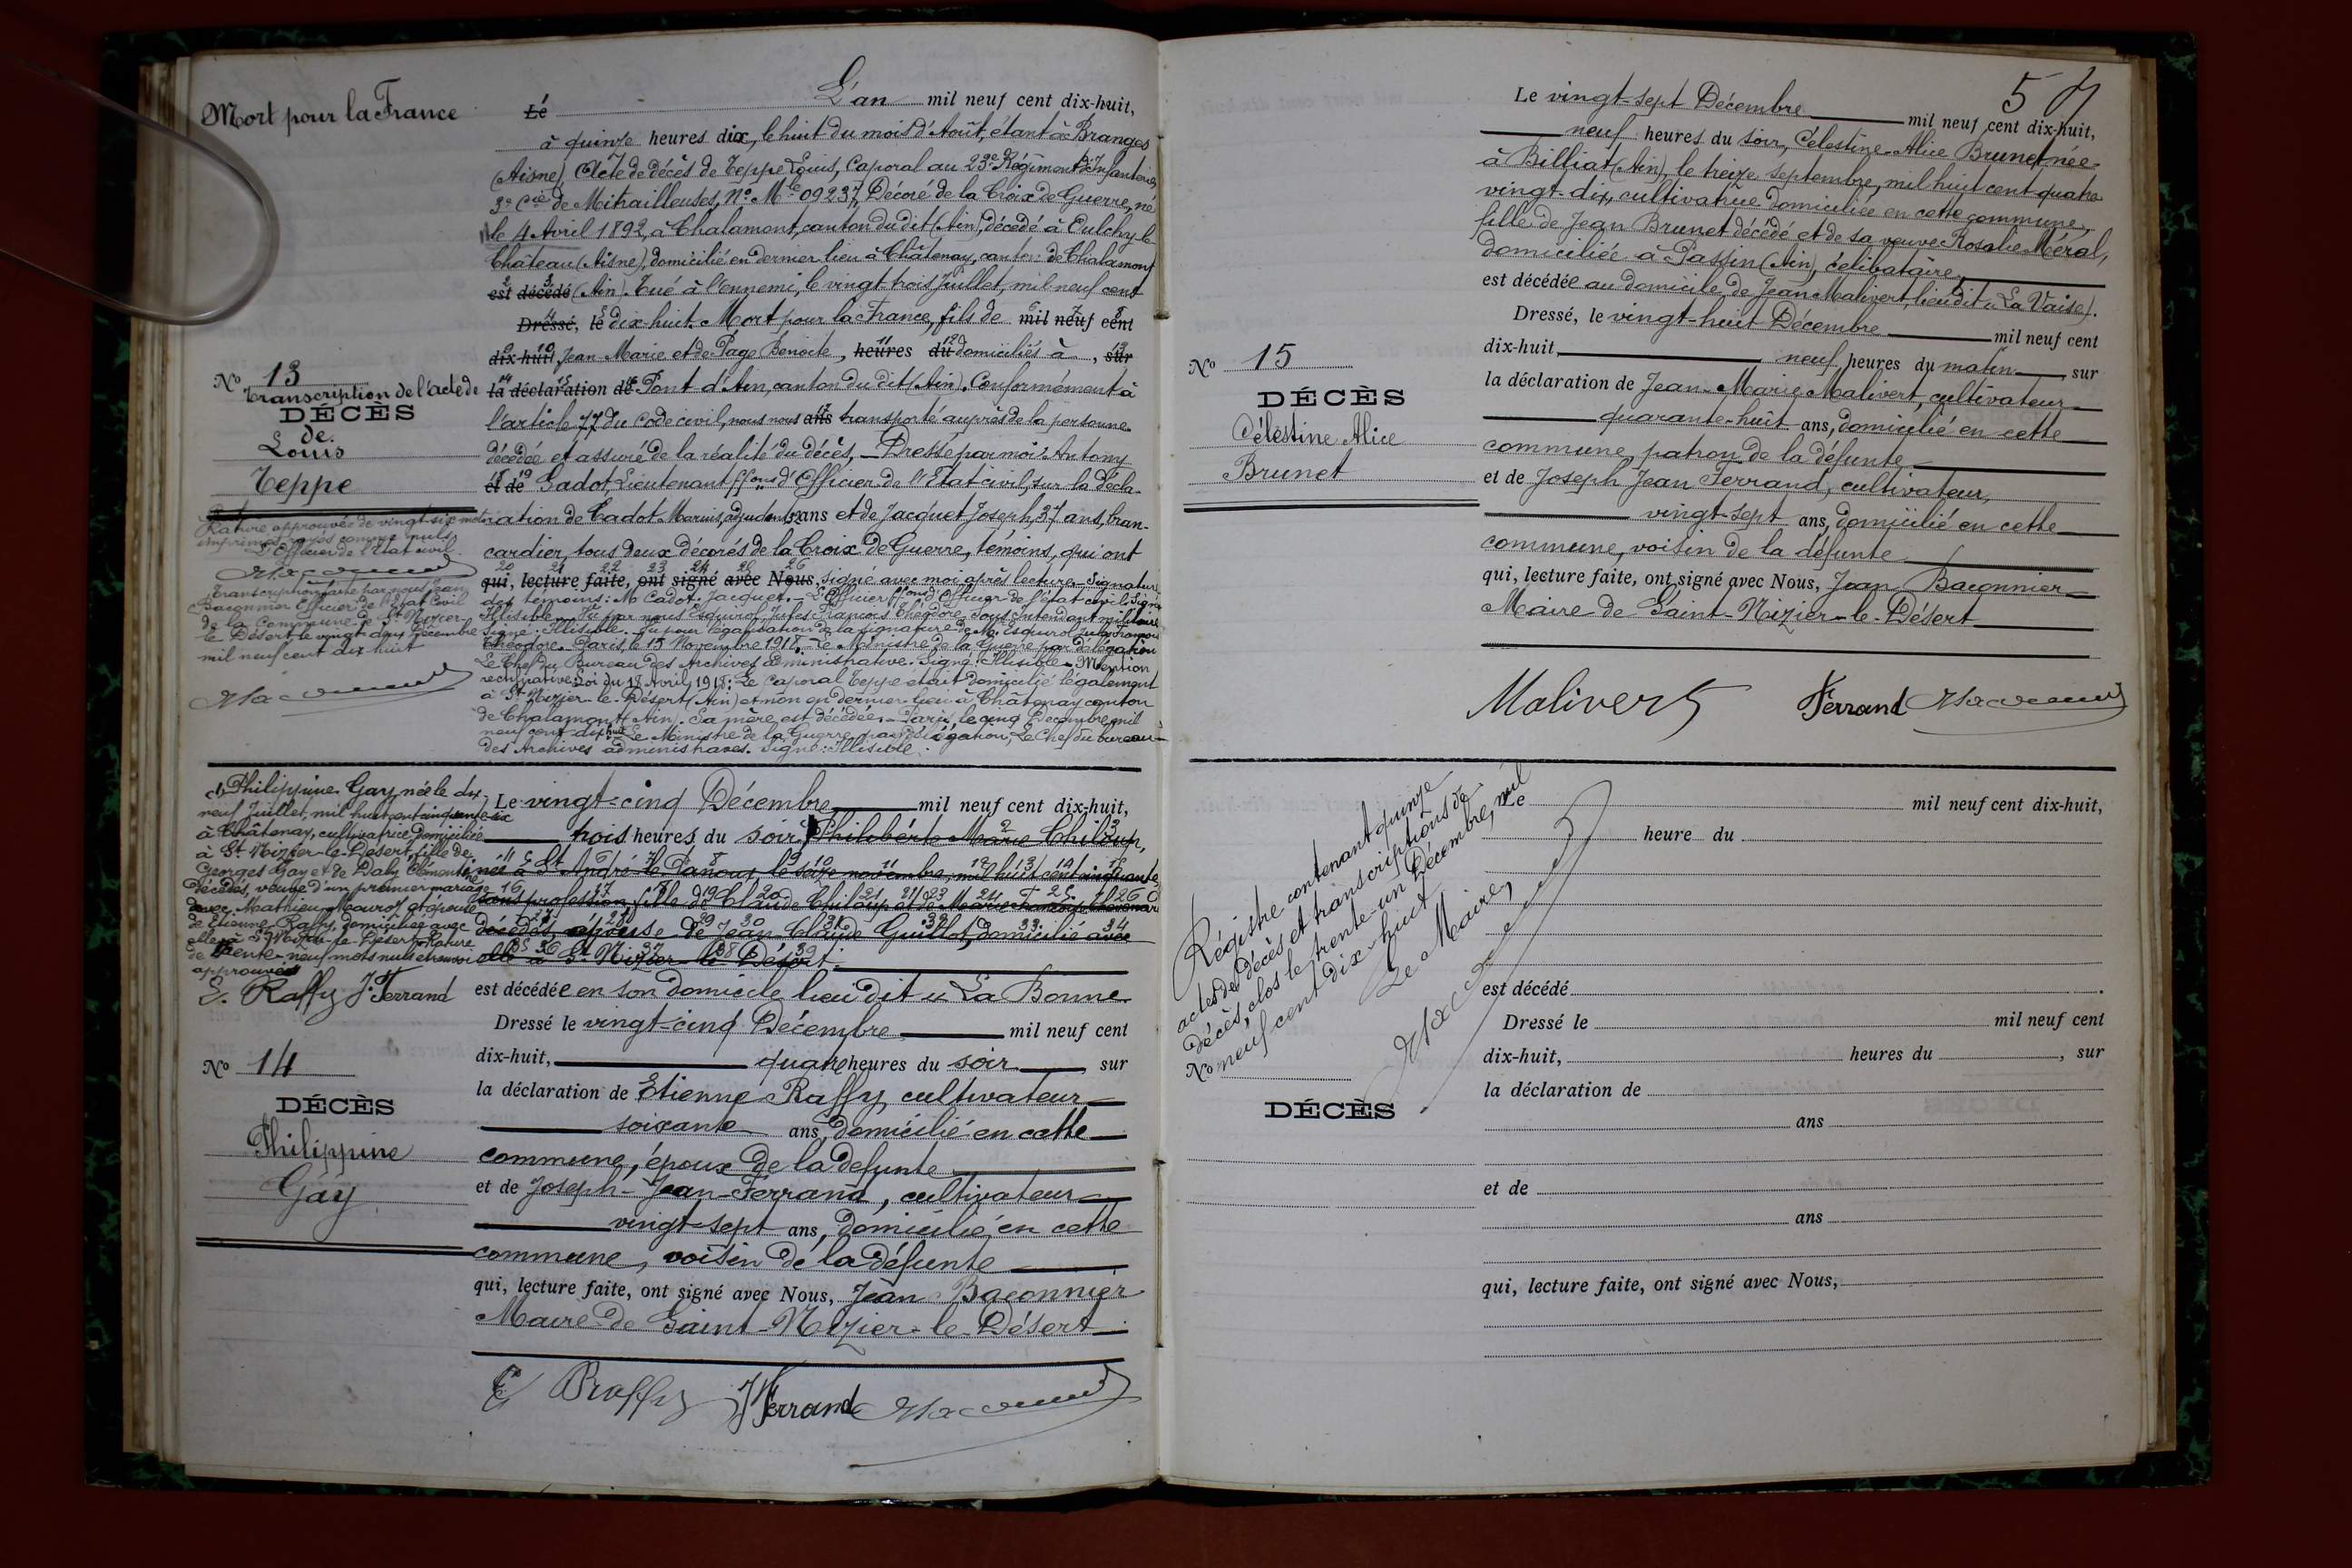 Mort pour la France
Le L'an mil neuf cent dix-huit,
à quinze heures dix, le huit du mois d'Août, étant à Branges
(Aisne) Acte de décès de Teppe Louis, Caporal au 23e Régiment d'Infanterie,
3e Cie de Mitrailleuses, No Mle 09237, Décoré de la Croix de Guerre, né
le 4 Avril 1892, à Chalamont, canton du dit (Ain), décédé à Oulchy-le-
Château (Aisne), domicilié en dernier lieu à Châtenay, canton de Chalamont
est décédé (Ain). Tué à l'ennemi, le vingt-trois Juillet, mil neuf cent
Dressé, le dix-huit. Mort pour la France, fils de mil neuf cent
dix-huit Jean Marie et de Page Benoite, heures du domiciliés à, sur
la déclaration de Pont d'Ain, canton du dit (Ain). Conformément à
l'article 77 du Code civil, nous nous ans transporté auprès de la personne
décédée et assuré de la réalité du décès, Dressé par moi: Antony
et de Gadot, Lieutenant ffons d'Officier de l'Etat civil, sur la décla-
ration de Cadot Marius, adjudant, ans et de Jacquet Joseph, 37 ans, bran-
cardier, tous deux décorés de la Croix de Guerre, témoins, qui ont
20 21 22 23 24 25 26
qui, lecture faite, ont signé avec Nous, signé avec moi après lecture. Signature
des témoins: M. Cadot. Jacquet. L'Officier ffons d'Officier de l'état civil Signé
Illisible. Vu par nous Esquirol Jules François Théodore Sous Intendant militaire
Signé: Illisible. Vu pour légalisation de la signature de M. Esquirol Jules François
Théodore. Paris, le 15 Novembre 1918. Le Ministre de la Guerre par délégation
Le Chef du Bureau des Archives administrative. Signé: Illisible. Mention
rectificative: Loi du 18 Avril 1918: Le Caporal Teppe était domicilié légalement
à St-Nizier-le-Désert (Ain) et non en dernier lieu à Châtenay canton
de Chalamont (Ain). Sa mère est décédée. Paris, le cinq Décembre mil
neuf cent dix huit Le Ministre de la Guerre par délégation, Le Chef du bureau
des Archives administraves. Signé: Illisible.
No 13
Transcription de l'acte de
DÉCÈS
de
Louis
Teppe
Rature approuvée de vingt-six mots
imprimés rayés comme nuls
L'Officier de l'Etat civil
Transcription faite par nous Jean
Baconnier Officier de l'Etat Civil
de la Commune de St-Nizier-
le Désert le vingt deux Décembre
mil neuf cent dix huit
(1) Philippine Gay née le dix-
neuf Juillet, mil huit cent cinquante-six
à Châtenay, cultivatrice, domiciliée
à St-Nizier-le-Désert, fille de
Georges Gay et de Daly Clémentine
décédés, veuve d'un premier mariage
avec Mathieu Mouroz et épouse
de Etienne Raffy, domiciliée avec
elle à St-Nizier-le-Désert. Rature
de trente-neuf mots nuls et renvoi
approuvés
E. Raffy J. Ferrand
Le vingt-cinq Décembre mil neuf cent dix-huit,
trois heures du soir, Philibérte Marie Chiloup,
née à St André-le-Panoux, le seize novembre, mil huit cent cinquante
sans profession, fille de Claude Chiloup et de Marie
décédés, épouse de Jean Claude Guillot, domicilié avec
elle à St-Nizier-le-Désert
est décédée en son domicile lieu dit « La Bonne
Dressé le vingt-cinq Décembre mil neuf cent
dix-huit, quatre heures du soir, sur
la déclaration de Etienne Raffy, cultivateur
soixante ans, domicilié en cette
commune, époux de la défunte
et de Joseph-Jean-Ferrand, cultivateur
vingt-sept ans, domicilié en cette
commune, voisin de la défunte
qui, lecture faite, ont signé avec Nous, Jean Baconnier
Maire de Saint-Nizier-le-Désert
No 14
DÉCÈS
Philippine
Gay
E Raffy J Ferrand
5
Le vingt-sept Décembre mil neuf cent dix-huit,
neuf heures du soir, Célestine-Alice Brunet née
à Billiat (Ain), le treize septembre, mil huit cent quatre
vingt-dix, cultivatrice domiciliée en cette commune,
fille de Jean Brunet décédé et de sa veuve Rosalie Méral,
domiciliée à Passin (Ain), célibataire,
est décédée au domicile de Jean Malivert, lieu dit « La Vaise).
Dressé, le vingt-huit Décembre mil neuf cent
dix-huit, neuf heures du matin, sur
la déclaration de Jean-Marie Malivert, cultivateur
quarante-huit ans, domicilié en cette
commune, patron de la défunte
et de Joseph Jean Ferrand, cultivateur,
vingt-sept ans, domicilié en cette
commune, voisin de la défunte
qui, lecture faite, ont signé avec Nous, Jean Baconnier
Maire de Saint-Nizier-le-Désert
No 15
DÉCÈS
Célestine Alice
Brunet
Malivert Ferrand
Régistre contenant quinze
actes de décès et transcriptions de
décès, clos le trente-un Décembre, mil
neuf cent dix-huit
Le Maire,
No
DÉCÈS
Le mil neuf cent dix-huit,
heure du
est décédé
Dressé le mil neuf cent
dix-huit, heures du, sur
la déclaration de
ans
et de
ans
qui, lecture faite, ont signé avec Nous,